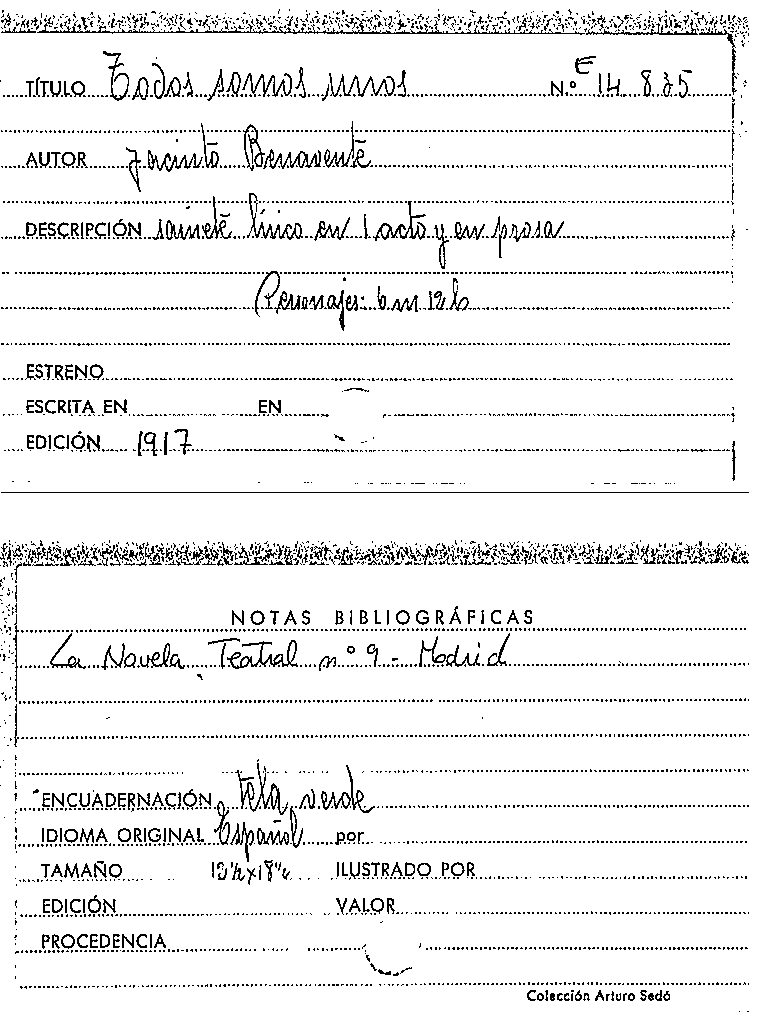 TÍTULO Todos somos unos N.º E 14 835
AUTOR Jacinto Benavente
DESCRIPCIÓN sainete lírico en 1 acto y en prosa
Personajes: 6 m 12 h
ESTRENO
ESCRITA EN EN
EDICIÓN 1917
NOTAS BIBLIOGRÁFICAS
La Novela Teatral nº 9 - Madrid
ENCUADERNACIÓN tela verde
IDIOMA ORIGINAL Español por
TAMAÑO ILUSTRADO POR
EDICIÓN VALOR
PROCEDENCIA
Colección Arturo Sedó